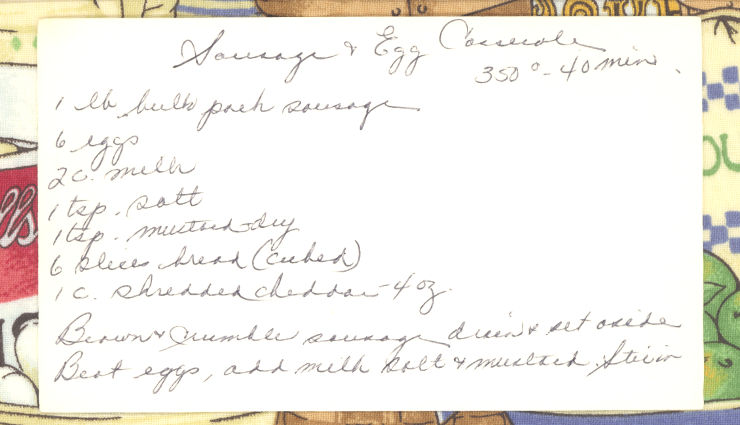 Sausage & Egg Casserole
350° - 40 min.
1 lb bulk pork sausage
6 eggs
2 c. milk
1 tsp. salt
1 tsp. mustard-dry
6 slices bread (cubed)
1 c. shredded cheddar - 4 oz.
Brown & crumble sausage drain & set aside
Beat eggs, add milk salt & mustard. Stir in